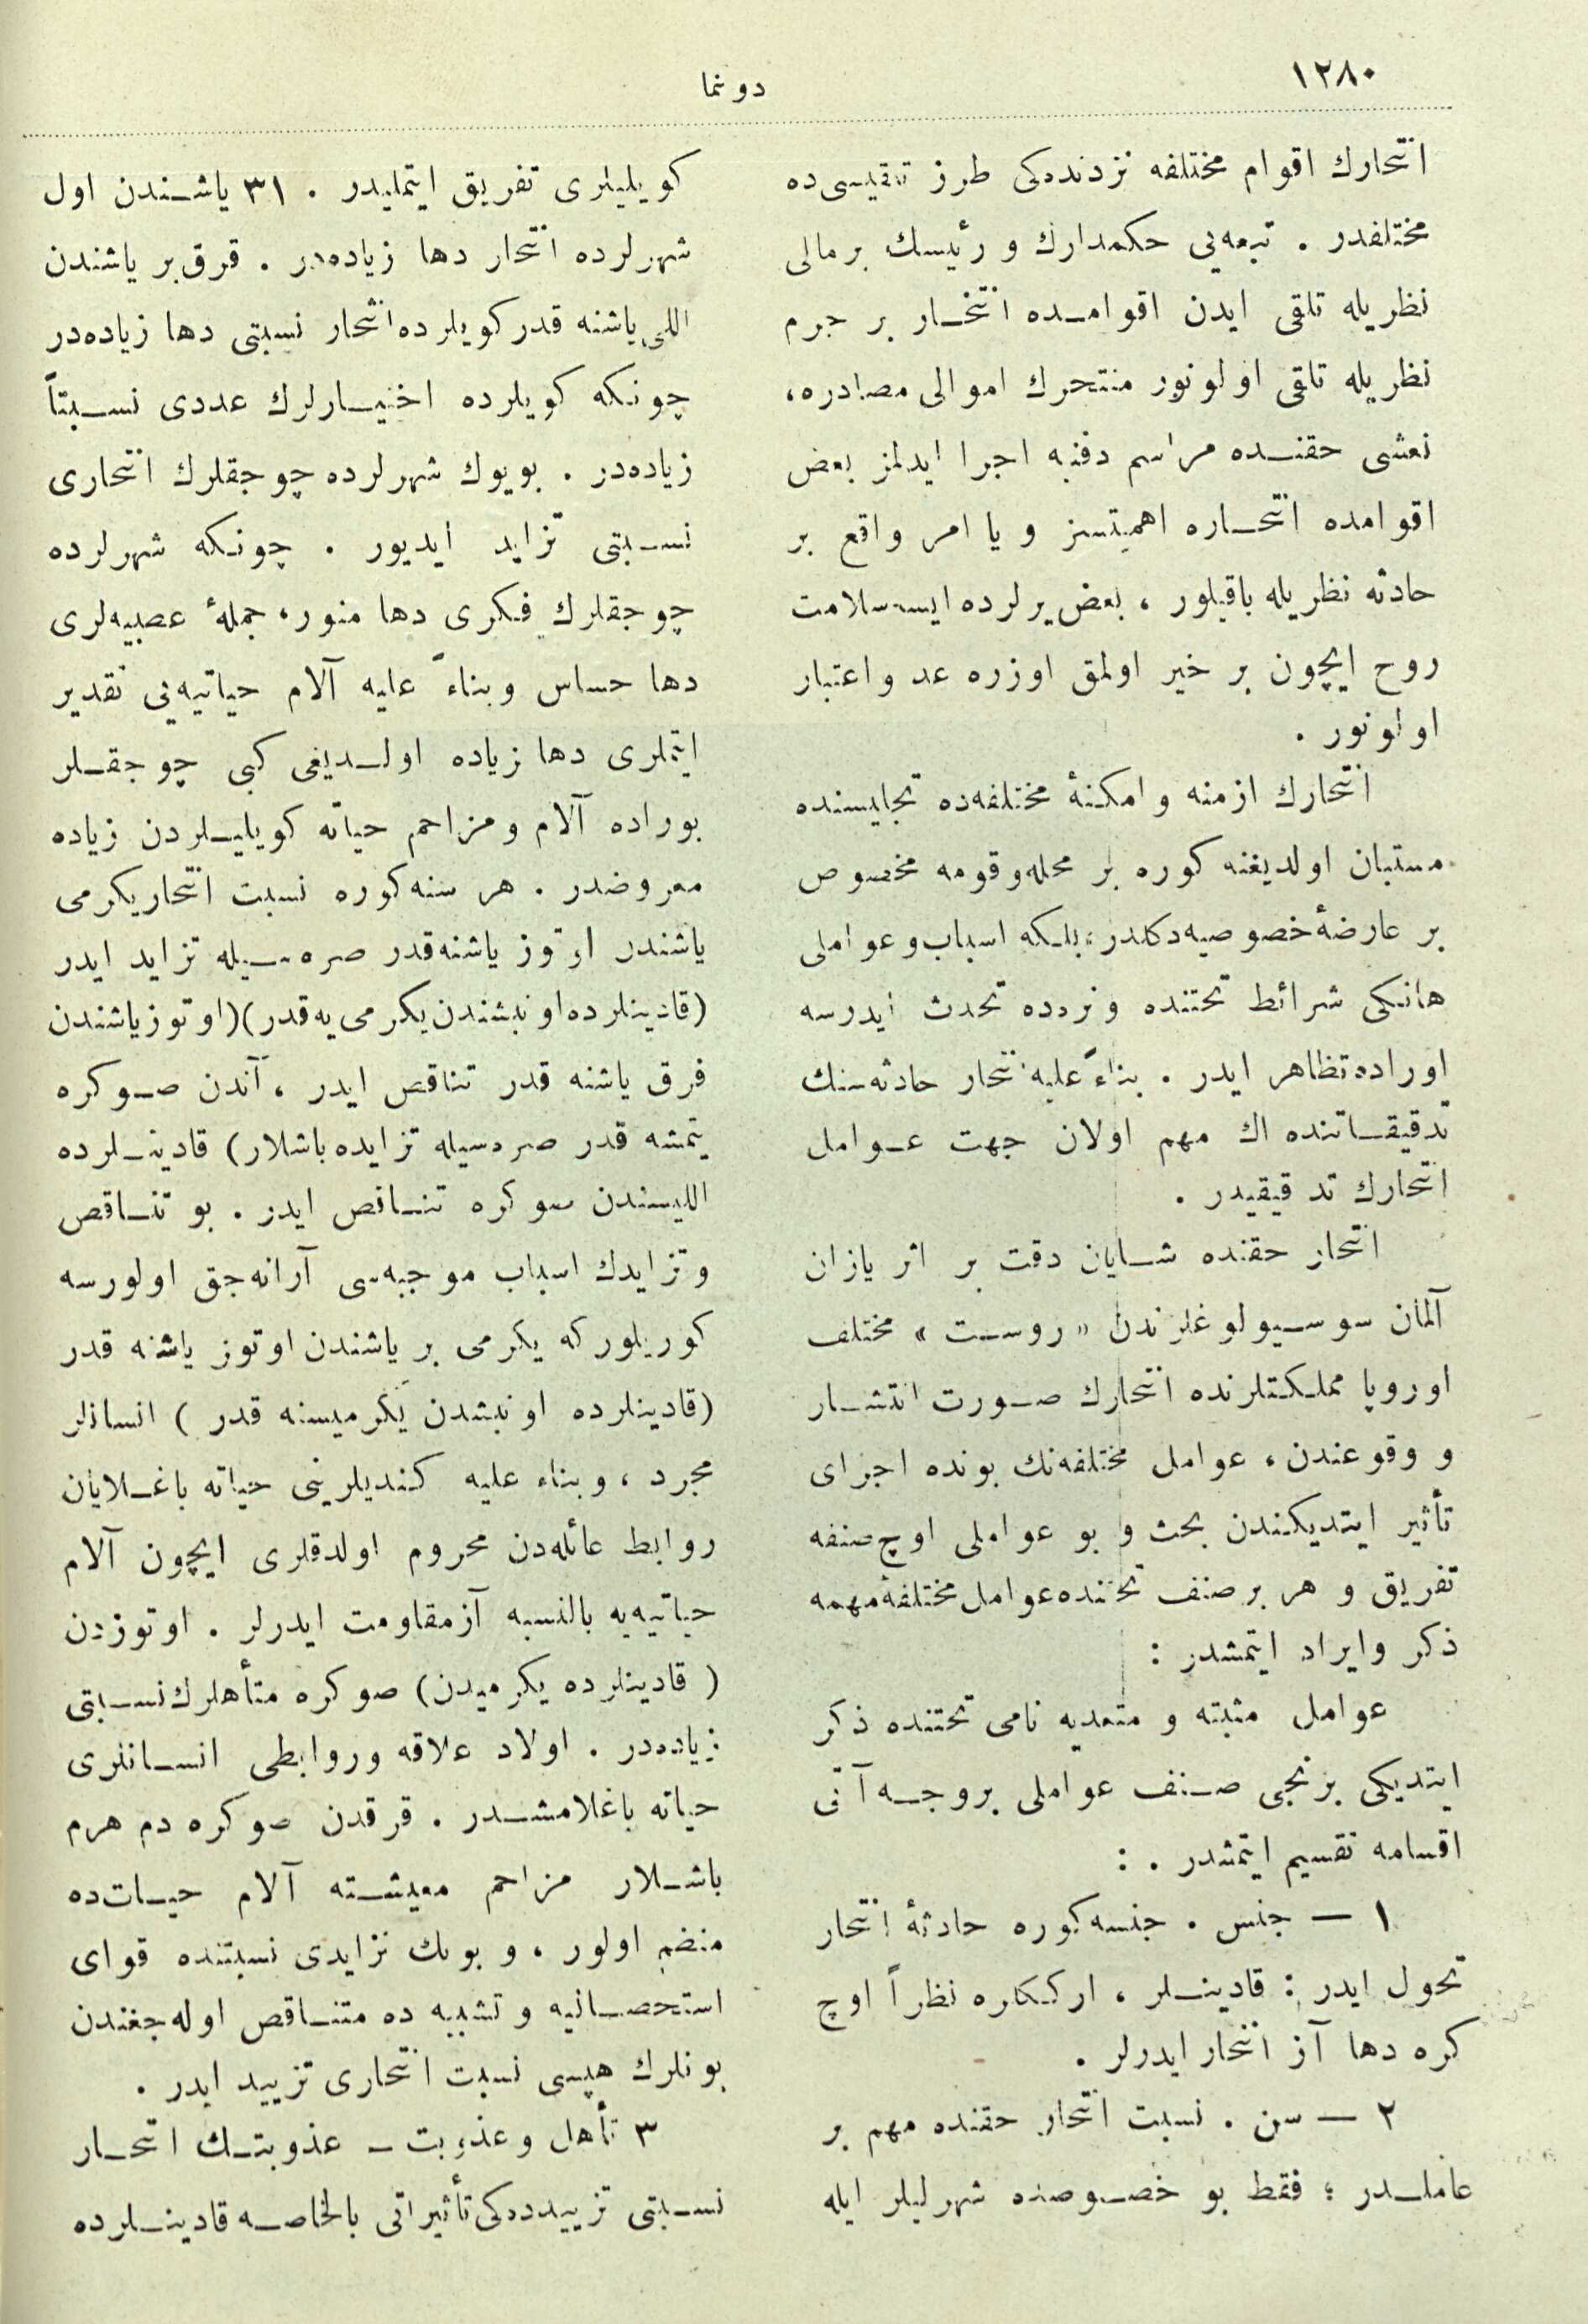 ١٢٨٠
دوننما
انتحارك اقوام مختلفه نزدنده‌كی طرز تلقیسی ده
مختلفدر . تبعه‌یی حكمدارك و رئیسك بر مالی
نظریله تلقی ایدن اقوامده انتحار بر جرم
نظریله تلقی اولونور منتحرك اموالی مصادره،
نعشی حقنده مراسم دفنیه اجرا ایدلمز بعض
اقوامده انتحاره اهمیتسز و یا امر واقع بر
حادثه نظریله باقیلور ، بعض یرلرده ایسه سلامت
روح ایچون بر خیر اولمق اوزره عد و اعتبار
اولونور .
انتحارك ازمنه و امكنهٔ مختلفه‌ده تجلیسنده
مستبان اولدیغنه كوره بر محله و قومه مخصوص
بر عارضهٔ خصوصیه دكلدر، بلكه اسباب و عواملی
هانكی شرائط تحتنده و نره‌ده تحدث ایدرسه
اوراده تظاهر ایدر . بناءً علیه انتحار حادثه سنك
تدقیقاتنده اك مهم اولان جهت عوامل
انتحارك تدقیقیدر .
انتحار حقنده شایان دقت بر اثر یازان
آلمان سوسیولوغلرندن « روست » مختلف
اوروپا مملكتلرنده انتحارك صورت انتشار
و وقوعندن، عوامل مختلفه‌نك بونده اجرای
تأثیر ایتدیكندن بحث و بو عواملی اوچ صنفه
تفریق و هر بر صنف تحتنده عوامل مختلفهٔ مهمه
ذكر و ایراد ایتمشدر :
عوامل مثبته و متعدیه نامی تحتنده ذكر
ایتدیكی برنجی صنف عواملی بروجه آتی
اقسامه تقسیم ایتمشدر . :
١ — جنس . جنسه كوره حادثهٔ انتحار
تحول ایدر : قادینلر ، ارككلره نظراً اوچ
كره دها آز انتحار ایدرلر .
٢ — سن . نسبت انتحار حقنده مهم بر
عاملدر ؛ فقط بو خصوصده شهرلیلر ایله
كویلیلری تفریق ایتملیدر . ٣١ یاشندن اول
شهرلرده انتحار دها زیاده‌در . قرق بر یاشندن
اللی یاشنه قدر كویلرده انتحار نسبتی دها زیاده‌در
چونكه كویلرده اختیارلرك عددی نسبتاً
زیاده‌در . بویوك شهرلرده چوجقلرك انتحاری
نسبتی تزاید ایدیور . چونكه شهرلرده
چوجقلرك فكری دها منور، جملهٔ عصبیه‌لری
دها حساس و بناءً علیه آلام حیاتیه‌یی تقدیر
ایتملری دها زیاده اولدیغی كبی چوجقلر
بوراده آلام و مزاحم حیاته كویلیلردن زیاده
معروضدر . هر سنه كوره نسبت انتحار یكرمی
یاشندن اوتوز یاشنه قدر صره‌سیله تزاید ایدر
(قادینلرده اون بشندن یكرمی‌یه قدر) (اوتوز یاشندن
قرق یاشنه قدر تناقص ایدر ، آندن صوكره
یتمشه قدر صره‌سیله تزایده باشلار) قادینلرده
اللیسندن صوكره تناقص ایدر . بو تناقص
و تزایدك اسباب موجبه‌سی آرانه‌جق اولورسه
كوریلوركه یكرمی بر یاشندن اوتوز یاشنه قدر
(قادینلرده اون بشدن یكرمیسنه قدر ) انسانلر
مجرد ، و بناء علیه كندیلرینی حیاته باغلایان
روابط عائله‌دن محروم اولدقلری ایچون آلام
حیاتیه‌یه بالنسبه آز مقاومت ایدرلر . اوتوزدن
( قادینلرده یكرمیدن) صوكره متأهلرك نسبتی
زیاده‌در . اولاد علاقه و روابطی انسانلری
حیاته باغلامشدر . قرقدن صوكره دم هرم
باشلار مزاحم معیشته آلام حیات‌ده
منضم اولور ، و بونك تزایدی نسبتنده قوای
استحصالیه و تشبثیه ده متناقص اوله‌جغندن
بونلرك هپسی نسبت انتحاری تزیید ایدر .
٣ تأهل و عذوبت — عذوبتك انتحار
نسبتی تزییدده‌كی تأثیراتی بالخاصه قادینلرده